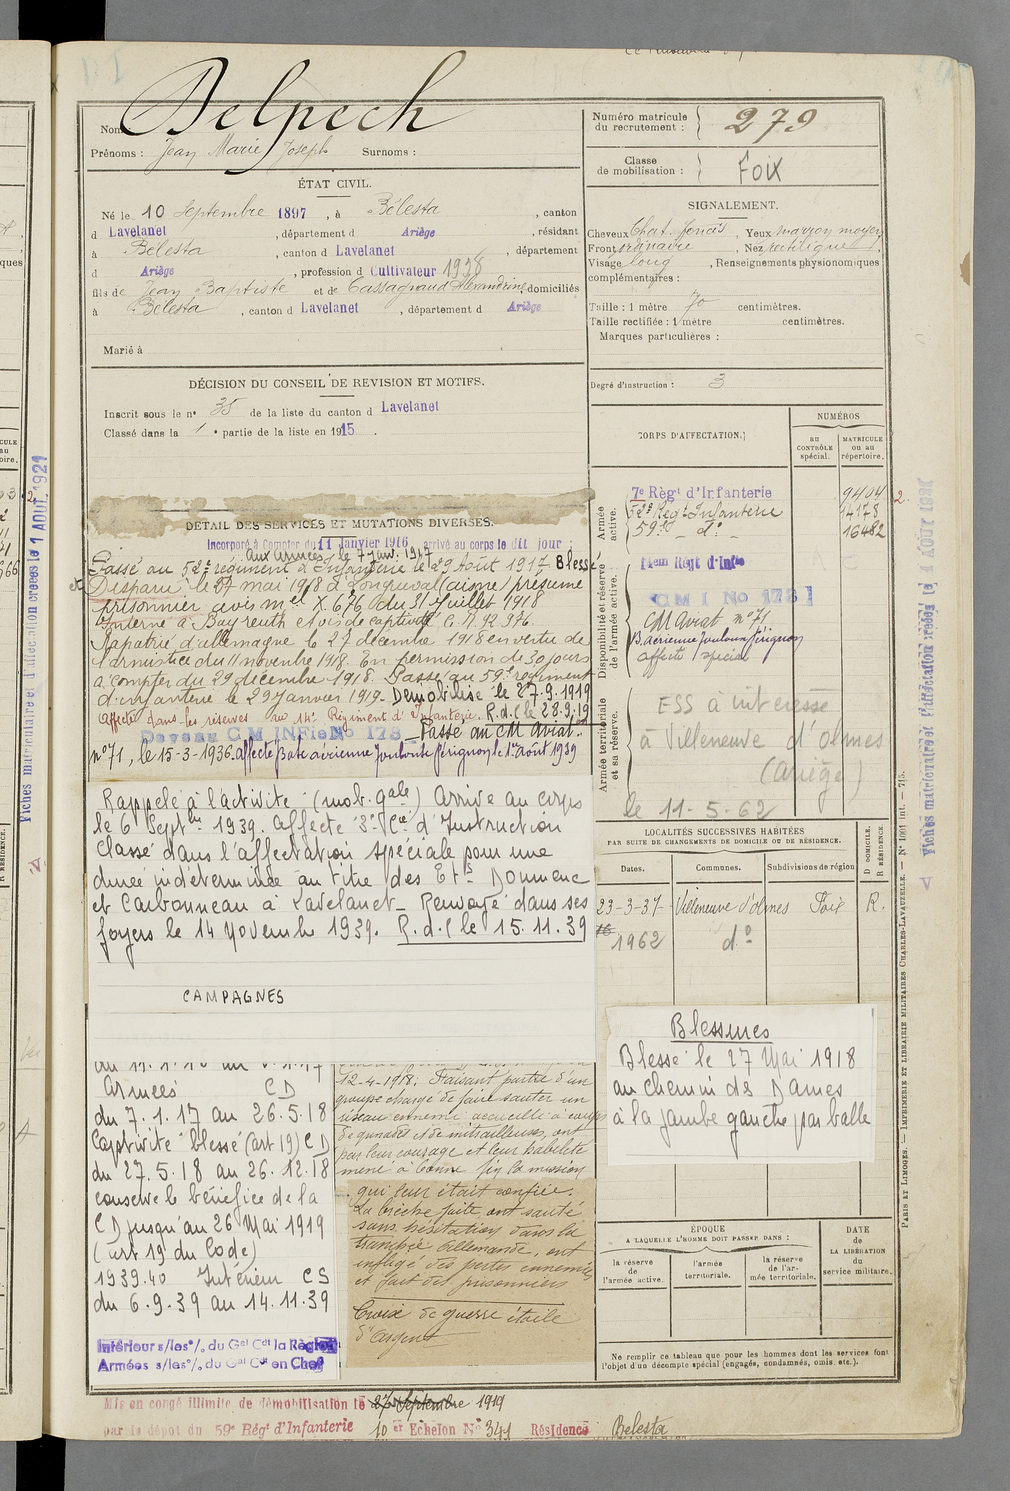 Delpech
Nom
Prénoms : Jean Marie Joseph Surnoms :
ÉTAT CIVIL.
Né le 10 Septembre 1897, à Bélesta, canton
d Lavelanet, département d Ariège, résidant
à Bélesta, canton d Lavelanet, département
d Ariège, profession d Cultivateur 1938
fils de Jean Baptiste et de Cassagnaud Alexandrine, domiciliés
à Bélesta, canton d Lavelanet, département d Ariège
Marié à
DÉCISION DU CONSEIL DE REVISION ET MOTIFS.
Inscrit sous le n° 35 de la liste du canton d Lavelanet
Classé dans la 1 e partie de la liste en 1915.
DÉTAIL DES SERVICES ET MUTATIONS DIVERSES.
Incorporé à Compter du 11 Janvier 1916, arrivé au corps le dit jour :
aux armées le 7 janv. 1917
Passé au 52e régiment d'Infanterie le 29 Août 1917 Blessé
et Disparu le 27 mai 1918 à Longueval (aisne) présumé
prisonnier avis mel X. 676 du 31 Juillet 1918
Interné à Bayreuth et avis de captivité C. R. 92 376.
Rapatrié d'allemagne le 27 décembre 1918 en vertu de
l'armistice du 11 novembre 1918. En permission de 30 jours
à compter du 29 décembre 1918. Passé au 59e régiment
d'infanterie le 29 Janvier 1919. Démobilisé le 27.9.1919
Affecté dans les réserves au 14e Régiment d'Infanterie. R.d.C le 28.9.19
Devenu C M INFie No 178 Passé au CM Aviat.
n° 71, le 15-3-1936. affecté Base aérienne Toulouse Pérignon le 1er août 1939
Rappelé à l'activité (mob. gale) Arrivé au corps
le 6 Septbre 1939. Affecté 3e Cie d'Instruction
Classé dans l'affectation spéciale pour une
durée indéterminée au titre des Ets Doumenc
et Carbonneau à Lavelanet. Renvoyé dans ses
foyers le 14 Novembre 1939. R.d.C le 15.11.39
CAMPAGNES
Armées CD
du 7.1.17 au 26.5.18
Captivité blessé (art 19) CD
du 27.5.18 au 26.12.18
conserve le bénéfice de la
CD jusqu'au 26 Mai 1919
(art 19 du Code)
1939.40 Intérieur CS
du 6.9.39 au 14.11.39
Intérieur s/les °/. du Gal Cdt la Région
Armées s/les °/. du Gal Cdt en Chef
12-4-1918: Faisant partie d'un
groupe chargé de faire sauter un
réseau ennemi accueilli à coups
de grenades et de mitrailleuses, ont
par leur courage et leur habileté
mené à bonne fin la mission
qui leur était confiée.
La brèche faite, ont sauté
sans hésitation dans la
tranchée Allemande, ont
infligé des pertes ennemies
et fait des prisonniers
Croix de guerre étoile
d'argent
Mis en congé illimité de démobilisation le 27 Septembre 1919
par le dépôt du 59e Régt d'Infanterie 10 er Echelon No 341 Résidence Belesta
Numéro matricule
du recrutement : 279
Classe
de mobilisation : Foix
SIGNALEMENT.
Cheveux Chat. foncés, Yeux marron moyen
Front ordinaire, Nez rectiligne
Visage long, Renseignements physionomiques
complémentaires :
Taille : 1 mètre 70 centimètres.
Taille rectifiée : 1 mètre centimètres.
Marques particulières :
Degré d'instruction : 3
CORPS D'AFFECTATION.
NUMÉROS
AU CONTRÔLE spécial.
MATRICULE ou au répertoire.
Armée active.
7e Régt d'Infanterie 9404
52e Régt Infanterie 14178
59e do 16482
Disponibilité et réserve de l'armée active.
14em Régt d'Infie
C M I No 178
CM Aviat n° 71
B. aérienne Toulouse Pérignon
affecté spécial
Armée territoriale et sa réserve.
ESS à intéressé
à Villeneuve d'Olmes
(Ariège)
le 11-5-62
LOCALITÉS SUCCESSIVES HABITÉES
PAR SUITE DE CHANGEMENTS DE DOMICILE OU DE RÉSIDENCE.
Dates. Communes. Subdivisions de région D DOMICILE. R RÉSIDENCE
23-3-37 Villeneuve d'Olmes Foix R.
1962 do
Blessures
Blessé le 27 Mai 1918
au Chemin des Dames
à la jambe gauche par balle
ÉPOQUE
A LAQUELLE L'HOMME DOIT PASSER DANS :
la réserve de l'armée active.
l'armée territoriale.
la réserve de l'armée territoriale.
DATE de LA LIBÉRATION du service militaire.
Ne remplir ce tableau que pour les hommes dont les services font
l'objet d'un décompte spécial (engagés, condamnés, omis, etc.).
PARIS ET LIMOGES. — IMPRIMERIE ET LIBRAIRIE MILITAIRES CHARLES-LAVAUZELLE. — N° 1001 int. — 715.
Fiches matriculaire et d'affectation créées le 1 AOUT 1921
Fiches matriculaire et d'affectation créées le 1 AOUT 1921